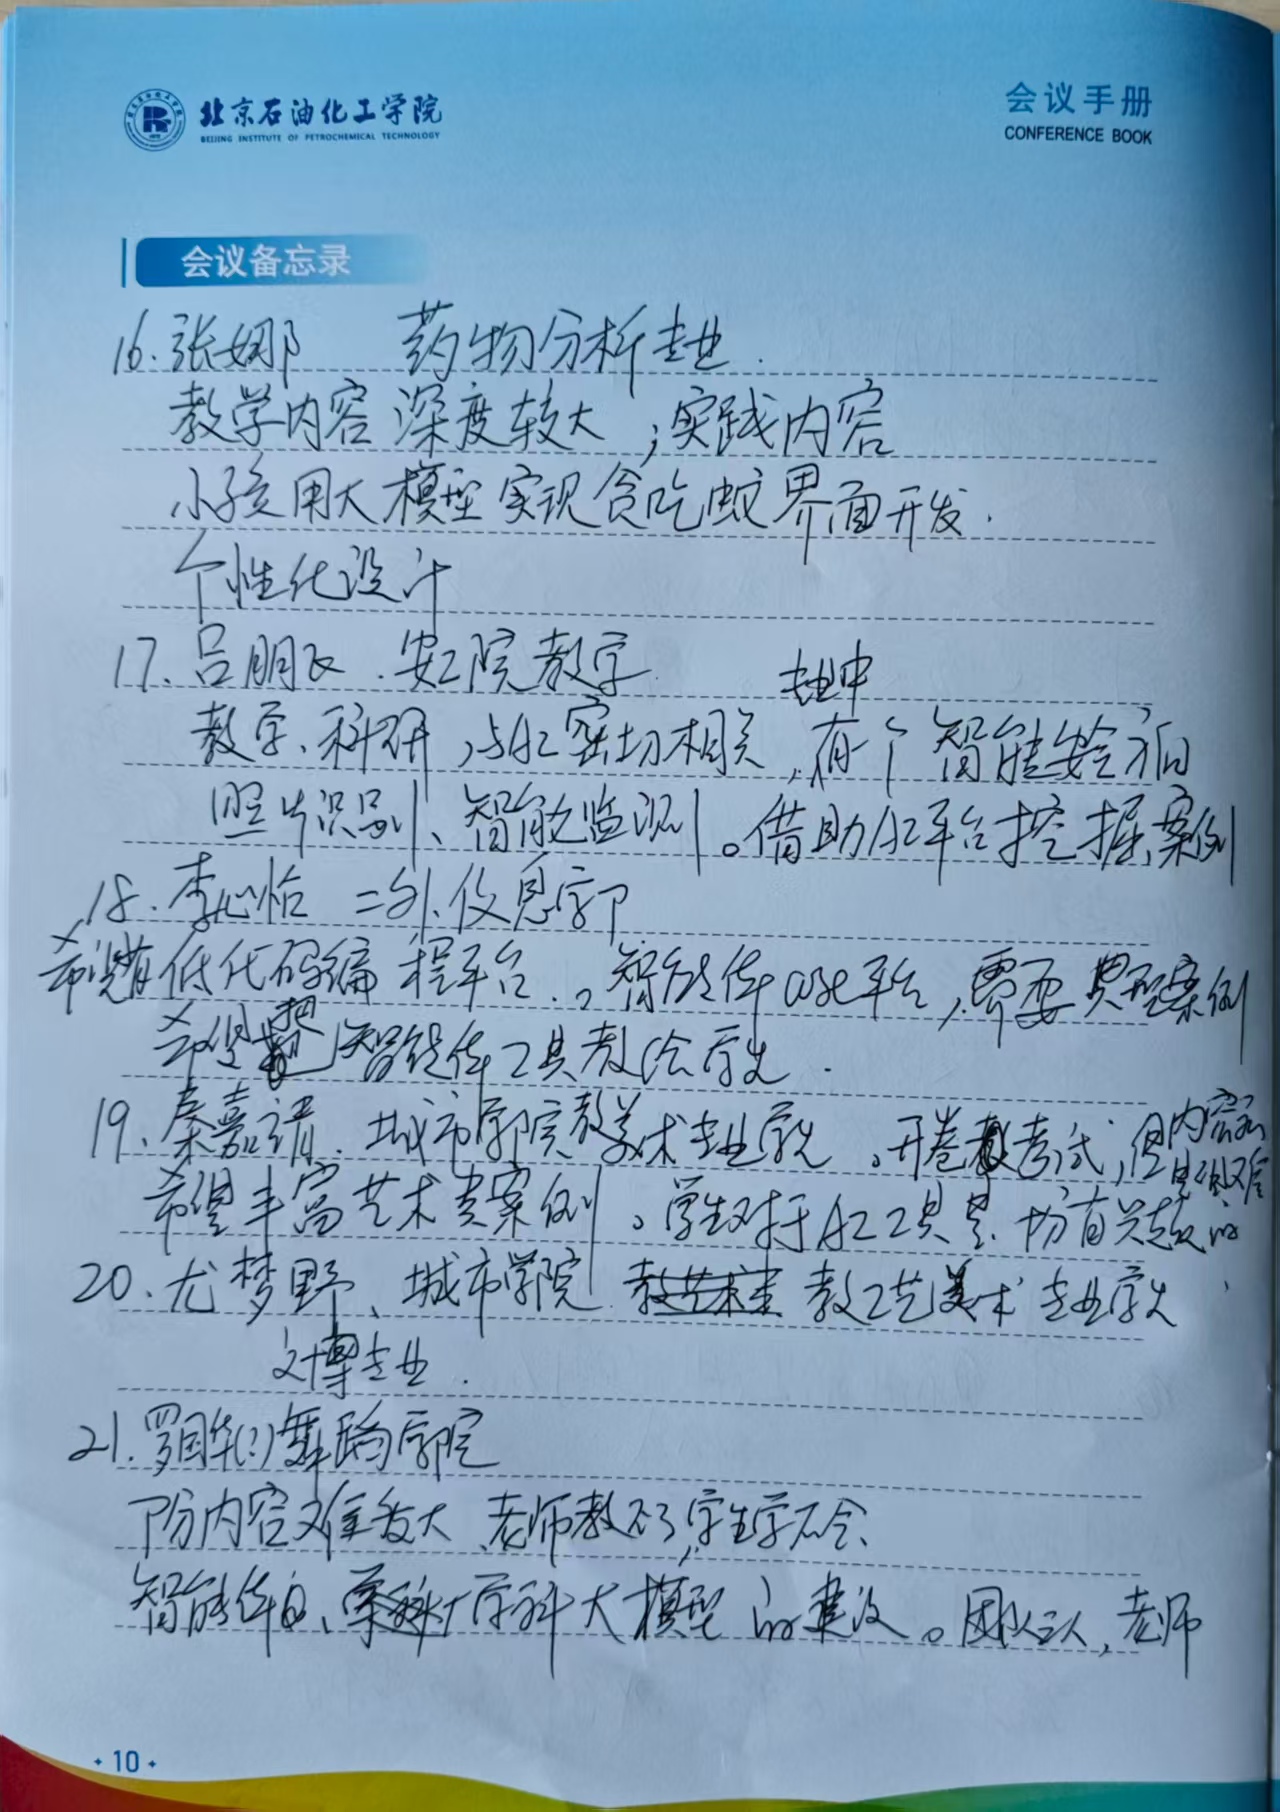 北京石油化工学院
BEIJING INSTITUTE OF PETROCHEMICAL TECHNOLOGY
会议手册
CONFERENCE BOOK
会议备忘录
16. 张娜 药物分析专业.
教学内容深度较大;实践内容
小孩用大模型实现贪吃蛇界面开发.
个性化设计
17. 吕朋 . 安工院教学.
专业中
教学、科研,与AI密切相关,有个智能安全帽
照片识别、智能监测。借助AI平台挖掘案例
18. 李心怡 二外、信息学部
希望有低代码编程平台.。智能体 平台,需要典型案例
希望把智能体工具教给学生.
19. 秦嘉 . 城市学院教美术专业学生。开卷考试,但内容
困难
希望丰富艺术类案例。学生对于AI工具是 有兴趣的
20. 尤梦野、城市学院. 教工艺美术专业学生.
文博专业.
21. 罗国华(?)舞蹈学院
内容难度大、老师教不了,学生学不会、
智能体 、学科大模型的建设。团队 ,老师
10